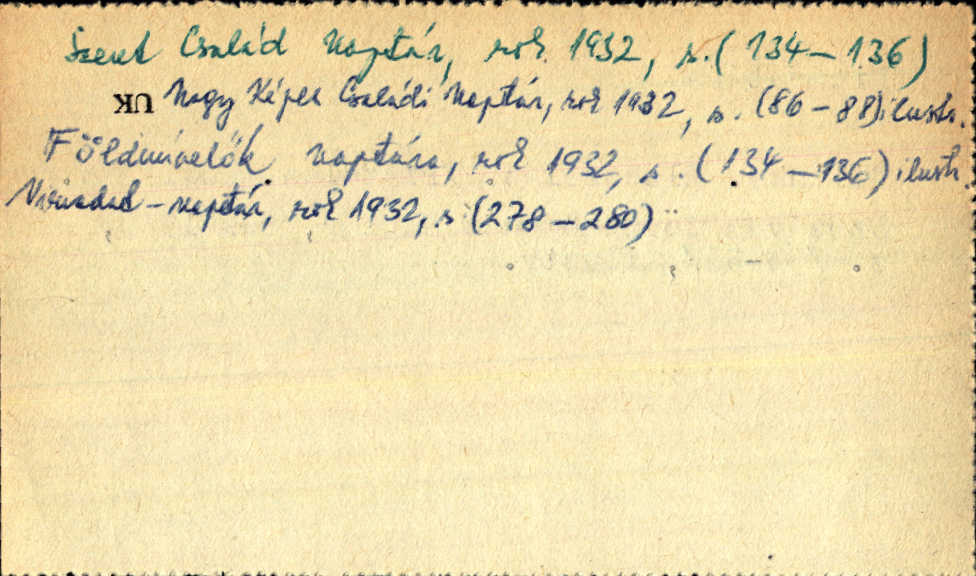 Szent Család Naptár, rok 1932, s. (134–136)
UK Nagy Képes Családi Naptár, rok 1932, s. (86–88) ilustr.
Földmívelők naptára, rok 1932, s. (134–136) ilustr.
–naptár, rok 1932, s. (278–280)